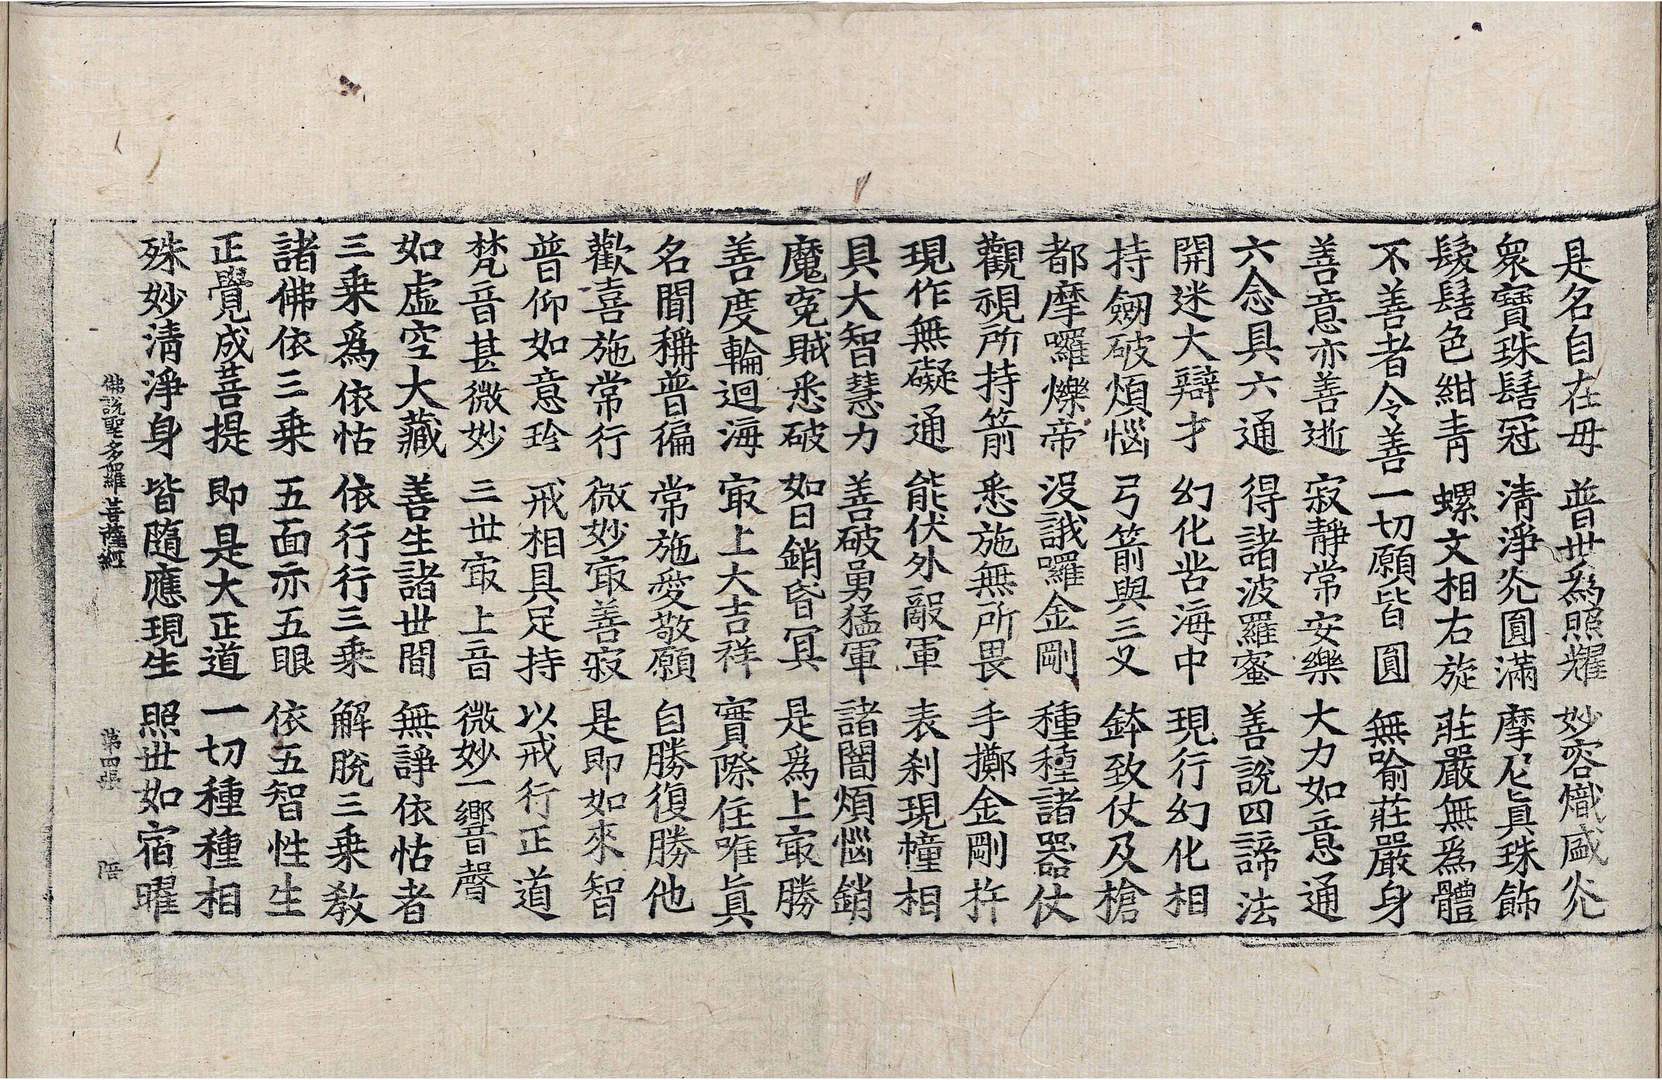 是名自在毋 普世為照耀 妙容熾盛灮
衆寶珠髻冠 清淨灮圓滿 摩尼真珠飾
鬘髻色紺青 螺文相右旋 莊嚴無爲體
不善者令善 一切願皆圓 無喻莊嚴身
善意亦善逝 寂靜常安樂 大力如意通
六念具六通 得諸波羅蜜 善說四諦法
開迷大辯才 幻化苦海中 現行幻化相
持劒破煩惱 弓箭與三叉 鉢致仗及槍
都摩囉爍帝 没誐囉金剛 種種諸器仗
觀視所持箭 悉施無所畏 手擲金剛杵
現作無礙通 能伏外敵軍 表刹現幢相
具大智慧力 善破勇猛軍 諸闇煩惱銷
魔寃賊悉破 如日銷昏冥 是爲上㝡勝
善度輪迴海 㝡上大吉祥 實際住唯真
名聞稱普徧 常施愛敬願 自勝復勝他
歡喜施常行 微妙㝡善寂 是即如來智
普仰如意珍 戒相具足持 以戒行正道
梵音甚微妙 三世㝡上音 微妙一響聲
如虛空大藏 善生諸世間 無諍依怙者
三乘爲依怙 依行行三乘 解脫三乘教
諸佛依三乘 五面亦五眼 依五智性生
正覺成菩提 即是大正道 一切種種相
殊妙清淨身 皆隨應現生 照世如宿曜
佛說聖多羅菩薩經 第四張